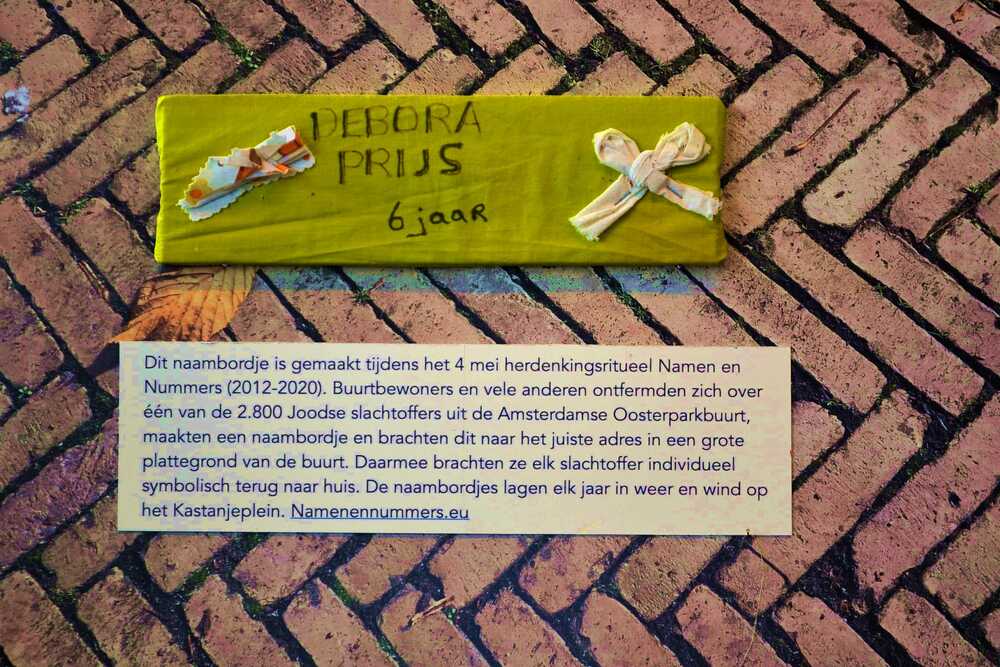 DEBORA
PRIJS
6 jaar
Dit naambordje is gemaakt tijdens het 4 mei herdenkingsritueel Namen en
Nummers (2012-2020). Buurtbewoners en vele anderen ontfermden zich over
één van de 2.800 Joodse slachtoffers uit de Amsterdamse Oosterparkbuurt,
maakten een naambordje en brachten dit naar het juiste adres in een grote
plattegrond van de buurt. Daarmee brachten ze elk slachtoffer individueel
symbolisch terug naar huis. De naambordjes lagen elk jaar in weer en wind op
het Kastanjeplein. Namenennummers.eu